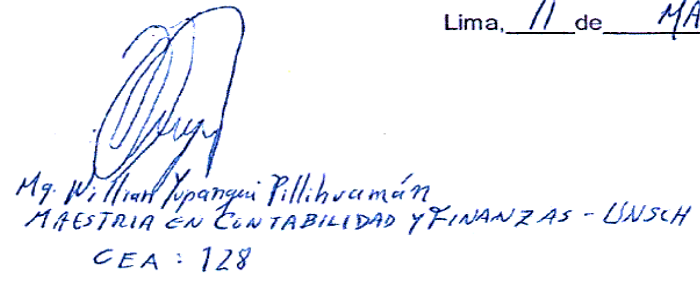 Lima, 11 de MA
Mg. Willian Yupanqui Pillihuamán
MAESTRIA EN CONTABILIDAD Y FINANZAS - UNSCH
CEA : 128